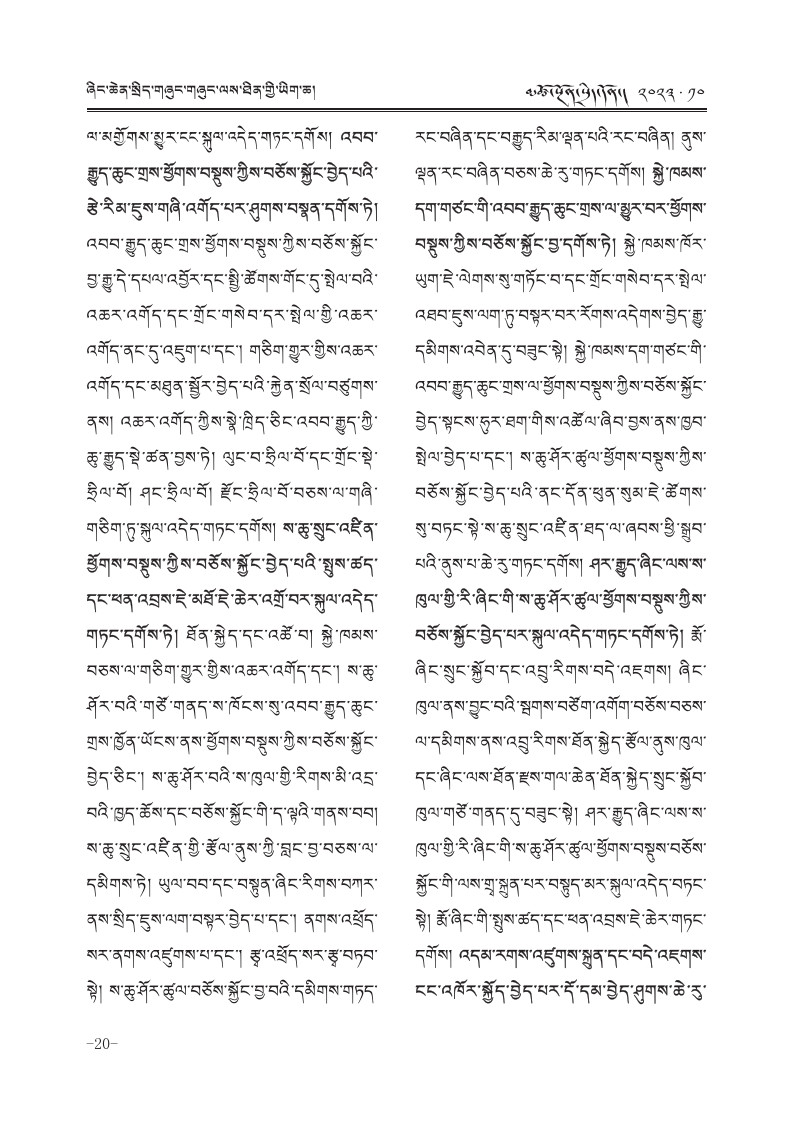 ཞིང་ཆེན་སྲིད་གཞུང་གཞུང་ལས་ཐིན་གྱི་ཡིག་ཆ།
༢༠༢༣ · ༡༠
ལ་མགྱོགས་མྱུར་ངང་སྐུལ་འདེད་གཏང་དགོས། འབབ་
རྒྱུད་ཆུང་གྲས་ཕྱོགས་བསྡུས་ཀྱིས་བཅོས་སྐྱོང་བྱེད་པའི་
རྩེ་རིམ་ཇུས་གཞི་འགོད་པར་ཤུགས་བསྣན་དགོས་ཏེ།
འབབ་རྒྱུད་ཆུང་གྲས་ཕྱོགས་བསྡུས་ཀྱིས་བཅོས་སྐྱོང་
བྱ་རྒྱུ་དེ་དཔལ་འབྱོར་དང་སྤྱི་ཚོགས་གོང་དུ་སྤེལ་བའི་
འཆར་འགོད་དང་གྲོང་གསེབ་དར་སྤེལ་གྱི་འཆར་
འགོད་ནང་དུ་འཇུག་པ་དང་། གཅིག་གྱུར་གྱིས་འཆར་
འགོད་དང་མཐུན་སྦྱོར་བྱེད་པའི་རྐྱེན་སྲོལ་བཙུགས་
ནས། འཆར་འགོད་ཀྱིས་སྣེ་ཁྲིད་ཅིང་འབབ་རྒྱུད་ཀྱི་
ཆུ་རྒྱུད་སྡེ་ཚན་བྱས་ཏེ། ལུང་བ་ཧྲིལ་བོ་དང་གྲོང་སྡེ་
ཧྲིལ་བོ། ཤང་ཧྲིལ་བོ། རྫོང་ཧྲིལ་བོ་བཅས་ལ་གཞི་
གཅིག་ཏུ་སྐུལ་འདེད་གཏང་དགོས། ས་ཆུ་སྲུང་འཛིན་
ཕྱོགས་བསྡུས་ཀྱིས་བཅོས་སྐྱོང་བྱེད་པའི་སྤུས་ཚད་
དང་ཕན་འབྲས་ཇེ་མཐོ་ཇེ་ཆེར་འགྲོ་བར་སྐུལ་འདེད་
གཏང་དགོས་ཏེ། ཐོན་སྐྱེད་དང་འཚོ་བ། སྐྱེ་ཁམས་
བཅས་ལ་གཅིག་གྱུར་གྱིས་འཆར་འགོད་དང་། ས་ཆུ་
ཤོར་བའི་གཙོ་གནད་ས་ཁོངས་སུ་འབབ་རྒྱུད་ཆུང་
གྲས་ཁྱོན་ཡོངས་ནས་ཕྱོགས་བསྡུས་ཀྱིས་བཅོས་སྐྱོང་
བྱེད་ཅིང་། ས་ཆུ་ཤོར་བའི་ས་ཁུལ་གྱི་རིགས་མི་འདྲ་
བའི་ཁྱད་ཆོས་དང་བཅོས་སྐྱོང་གི་ད་ལྟའི་གནས་བབ།
ས་ཆུ་སྲུང་འཛིན་གྱི་རྩོལ་ནུས་ཀྱི་བླང་བྱ་བཅས་ལ་
དམིགས་ཏེ། ཡུལ་བབ་དང་བསྟུན་ཞིང་རིགས་བཀར་
ནས་སྲིད་ཇུས་ལག་བསྟར་བྱེད་པ་དང་། ནགས་འཕྲོད་
སར་ནགས་འཛུགས་པ་དང་། རྩྭ་འཕྲོད་སར་རྩྭ་བཏབ་
སྟེ། ས་ཆུ་ཤོར་ཚུལ་བཅོས་སྐྱོང་བྱ་བའི་དམིགས་གཏད་
རང་བཞིན་དང་བརྒྱུད་རིམ་ལྡན་པའི་རང་བཞིན། ནུས་
ལྡན་རང་བཞིན་བཅས་ཆེ་རུ་གཏང་དགོས། སྐྱེ་ཁམས་
དག་གཙང་གི་འབབ་རྒྱུད་ཆུང་གྲས་ལ་མྱུར་བར་ཕྱོགས་
བསྡུས་ཀྱིས་བཅོས་སྐྱོང་བྱ་དགོས་ཏེ། སྐྱེ་ཁམས་ཁོར་
ཡུག་ཇེ་ལེགས་སུ་གཏོང་བ་དང་གྲོང་གསེབ་དར་སྤེལ་
འཐབ་ཇུས་ལག་ཏུ་བསྟར་བར་རོགས་འདེགས་བྱེད་རྒྱུ་
དམིགས་འབེན་དུ་བཟུང་སྟེ། སྐྱེ་ཁམས་དག་གཙང་གི་
འབབ་རྒྱུད་ཆུང་གྲས་ལ་ཕྱོགས་བསྡུས་ཀྱིས་བཅོས་སྐྱོང་
བྱེད་སྟངས་ཧུར་ཐག་གིས་འཚོལ་ཞིབ་བྱས་ནས་ཁྱབ་
སྤེལ་བྱེད་པ་དང་། ས་ཆུ་ཤོར་ཚུལ་ཕྱོགས་བསྡུས་ཀྱིས་
བཅོས་སྐྱོང་བྱེད་པའི་ནང་དོན་ཕུན་སུམ་ཇེ་ཚོགས་
སུ་བཏང་སྟེ་ས་ཆུ་སྲུང་འཛིན་ཐད་ལ་ཞབས་ཕྱི་སྒྲུབ་
པའི་ནུས་པ་ཆེ་རུ་གཏང་དགོས། ཤར་རྒྱུད་ཞིང་ལས་ས་
ཁུལ་གྱི་རི་ཞིང་གི་ས་ཆུ་ཤོར་ཚུལ་ཕྱོགས་བསྡུས་ཀྱིས་
བཅོས་སྐྱོང་བྱེད་པར་སྐུལ་འདེད་གཏང་དགོས་ཏེ། རྨོ་
ཞིང་སྲུང་སྐྱོབ་དང་འབྲུ་རིགས་བདེ་འཇགས། ཞིང་
ཁུལ་ནས་བྱུང་བའི་སྦགས་བཙོག་འགོག་བཅོས་བཅས་
ལ་དམིགས་ནས་འབྲུ་རིགས་ཐོན་སྐྱེད་རྩོལ་ནུས་ཁུལ་
དང་ཞིང་ལས་ཐོན་རྫས་གལ་ཆེན་ཐོན་སྐྱེད་སྲུང་སྐྱོབ་
ཁུལ་གཙོ་གནད་དུ་བཟུང་སྟེ། ཤར་རྒྱུད་ཞིང་ལས་ས་
ཁུལ་གྱི་རི་ཞིང་གི་ས་ཆུ་ཤོར་ཚུལ་ཕྱོགས་བསྡུས་བཅོས་
སྐྱོང་གི་ལས་གྲྭ་སྐྲུན་པར་བསྟུད་མར་སྐུལ་འདེད་བཏང་
སྟེ། རྨོ་ཞིང་གི་སྤུས་ཚད་དང་ཕན་འབྲས་ཇེ་ཆེར་གཏང་
དགོས། འདམ་རགས་འཛུགས་སྐྲུན་དང་བདེ་འཇགས་
ངང་འཁོར་སྐྱོད་བྱེད་པར་དོ་དམ་བྱེད་ཤུགས་ཆེ་རུ་
-20-